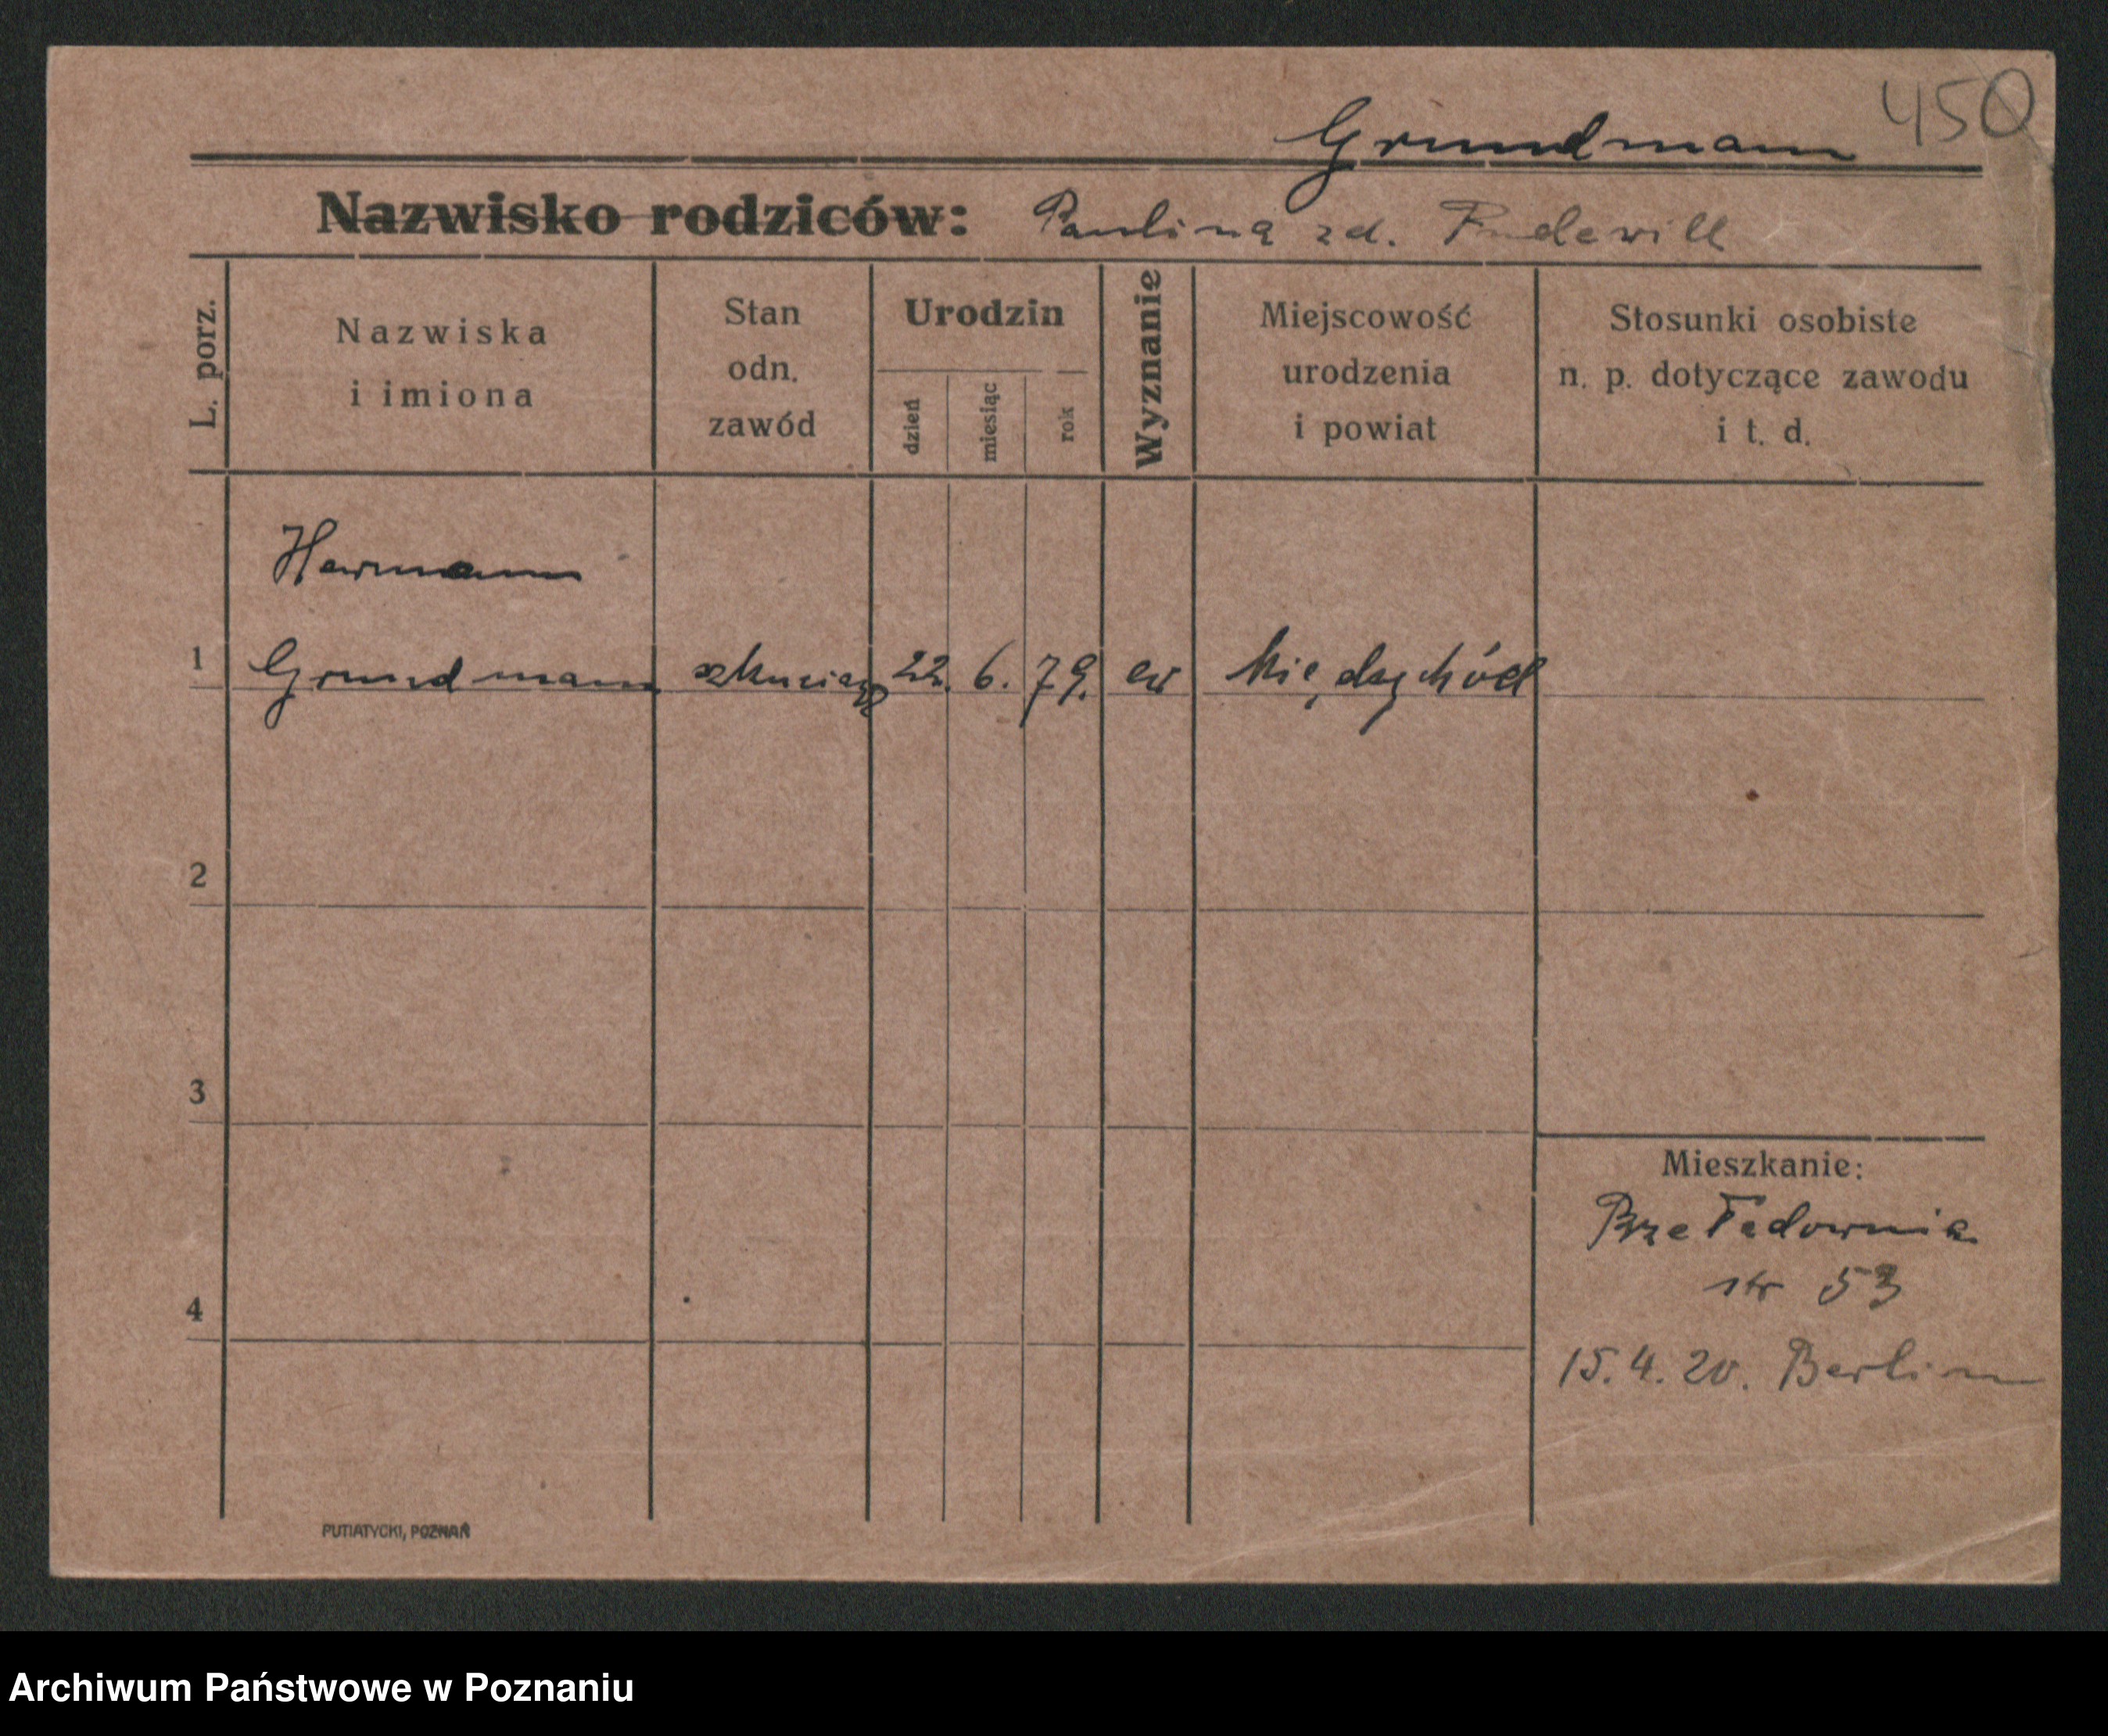 450
Grundmann
Nazwisko rodziców: Paulina zd. Pudewill
L. porz.
Nazwiska
i imiona
Stan
odn.
zawód
Urodzin
dzień
miesiąc
rok
Wyznanie
Miejscowość
urodzenia
i powiat
Stosunki osobiste
n. p. dotyczące zawodu
i t. d.
Hermann
1 Grundmann 22. 6. 79. ew Międzychód
2
3
4
Mieszkanie:
Przepadownia
str 53
15.4.20. Berlin
PUTIATYCKI, POZNAŃ
Archiwum Państwowe w Poznaniu